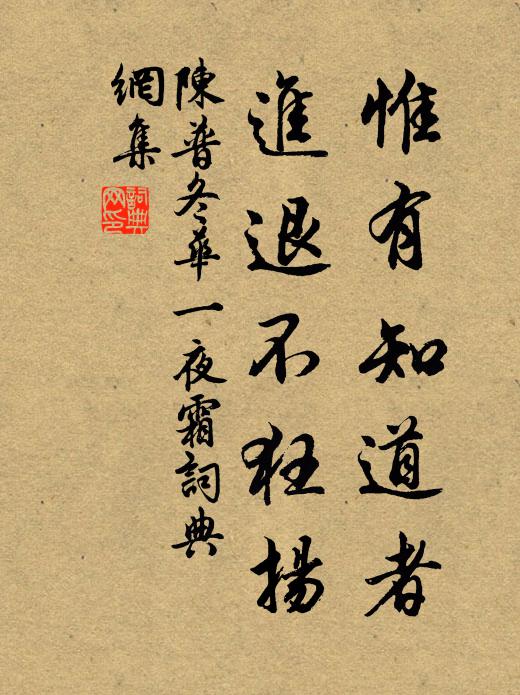 惟有知道者
進退不狂揚
陳普冬華一夜霜詞典
網集
詞典網印